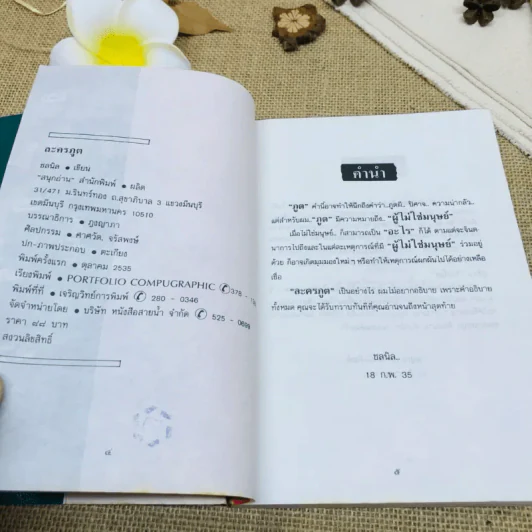 ละครภูต
ชลนิล • เขียน
"สนุกอ่าน" สำนักพิมพ์ • ผลิต
31/471 ม.รินทร์ทอง ถ.สุขาภิบาล 3 แขวงมีนบุรี
เขตมีนบุรี กรุงเทพมหานคร 10510
บรรณาธิการ • ภูงญาภา
ศิลปกรรม • ศาศวัต. จรัสพงษ์
ปก-ภาพประกอบ • ตะเกียง
พิมพ์ครั้งแรก • ตุลาคม 2535
เรียงพิมพ์ • PORTFOLIO COMPUGRAPHIC ✆ 378 -
พิมพ์ที่ • เจริญวิทย์การพิมพ์ ✆ 280 - 0346
จัดจำหน่ายโดย • บริษัท หนังสือสายน้ำ จำกัด ✆ 525 - 0699
ราคา ๔๘ บาท
สงวนลิขสิทธิ์
๔
คำนำ
"ภูต" คำนี้อาจทำให้นึกถึงคำว่า..ภูตผี.. ปีศาจ.. ความน่ากลัว..
แต่สำหรับผม.."ภูต" มีความหมายถึง.. "ผู้ไม่ใช่มนุษย์"
เมื่อไม่ใช่มนุษย์.. ก็สามารถเป็น "อะไร" ก็ได้ ตามแต่จะจินต
นาการไปถึงและในแต่ละเหตุการณ์ที่มี "ผู้ไม่ใช่มนุษย์" ร่วมอยู่
ด้วย ก็อาจเกิดมุมมองใหม่ๆ หรือทำให้เหตุการณ์ผกผันไปได้อย่างเหลือ
เชื่อ
"ละครภูต" เป็นอย่างไร ผมไม่อยากอธิบาย เพราะคำอธิบาย
ทั้งหมด คุณจะได้รับทราบทันทีที่คุณอ่านจนถึงหน้าสุดท้าย
ชลนิล..
18 ก.พ. 35
๕